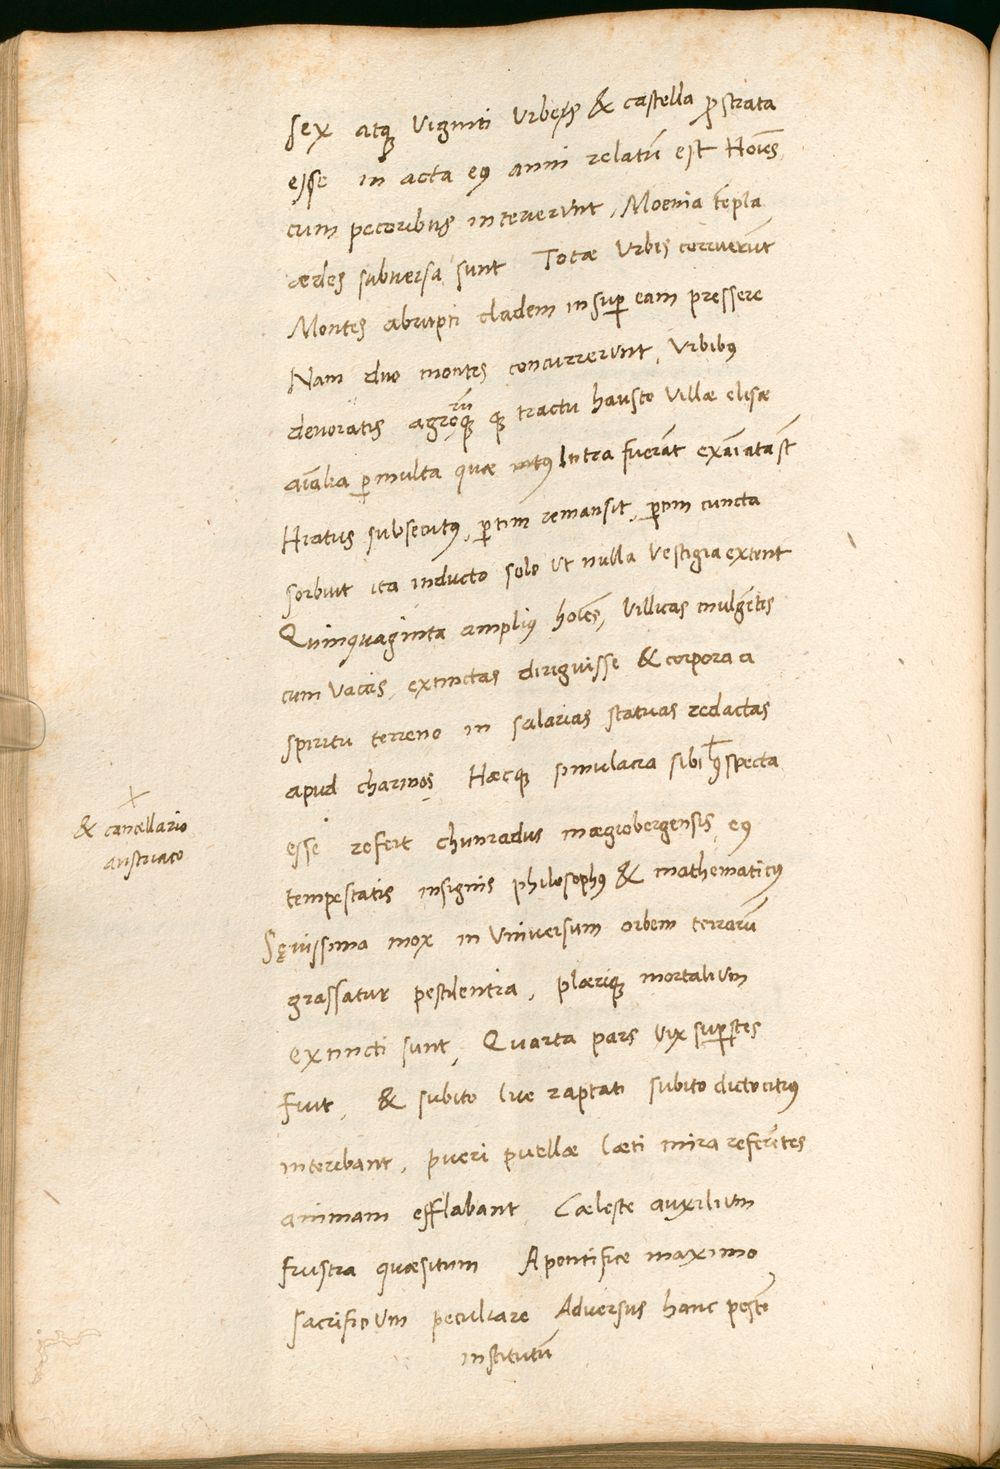 sex atq; Viginti Vrbes & castella ꝓstrata
esse in acta eꝰ anni relatū est Hoīes
cum pecoribus interierunt, Moenia tēpla
ædes subuersa sunt Totæ Vrbis corruerūt
Montes abrupti cladem insuꝑ eam pressere
Nam duo montes concurrerunt, Vrbibꝰ
deuoratis agro rū q; tractu hausto Villæ elisæ
aīalia ꝑmulta quæ intra fuerāt exāīata st̄
Hiatus subsecutꝰ, ꝑtim remansit, ꝑtim cuncta
sorbuit ita inducto solo Vt nulla Vestigia extent
Quinquaginta ampliꝰ hoīes, Villicas mulgētes
cum Vaccis, extinctas diriguisse & corpora a
spiritu terreno in salarias statuas redactas
apud charinos Hæcq; simulacra sibi ꝯspecta
esse refert chunradus mægrobergensis, eꝰ
tempestatis insignis philosophꝰ & mathematicꝰ
× & cancellario
austriaco
Sęuissima mox in Vniuersum orbem terrarū
grassatur pestilentia, plæriq; mortalium
extincti sunt, Quarta pars Vix suꝑstes
fuit, & subito lue raptati subito dicto citiꝰ
interibant, pueri puellæ læti mira referētes
animam efflabant Cæleste auxilium
frustra quæsitum A pontifice maximo
sacrificium peculiare Aduersus hanc pestē
institutū